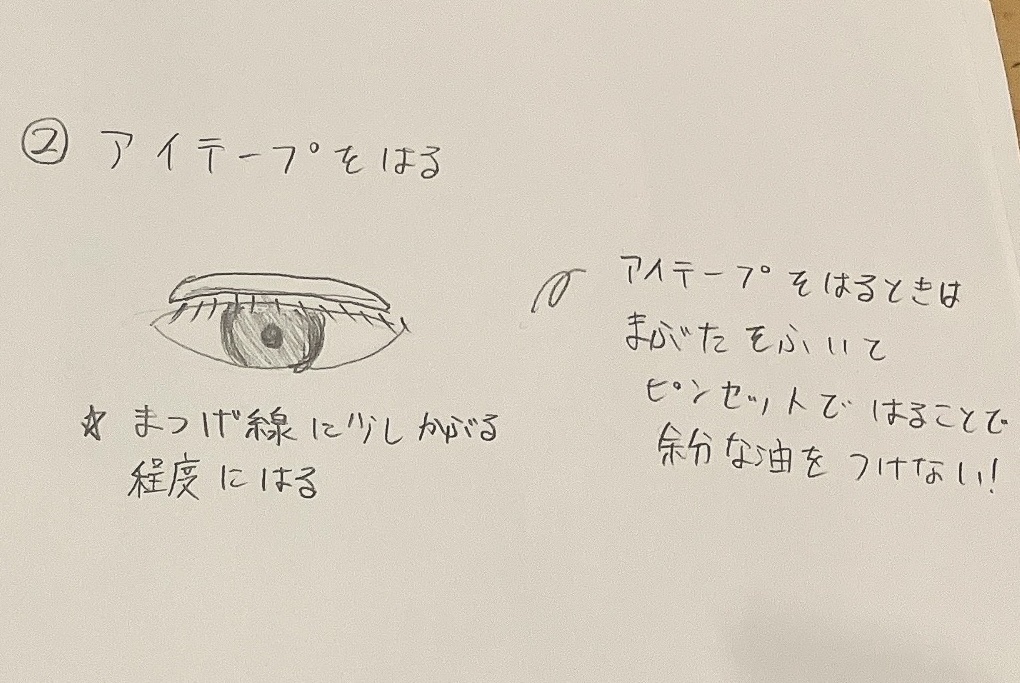 ② アイテープをはる
☆ まつげ線に少しかぶる
程度にはる
アイテープをはるときは
まぶたをふいて
ピンセットではることで
余分な油をつけない!